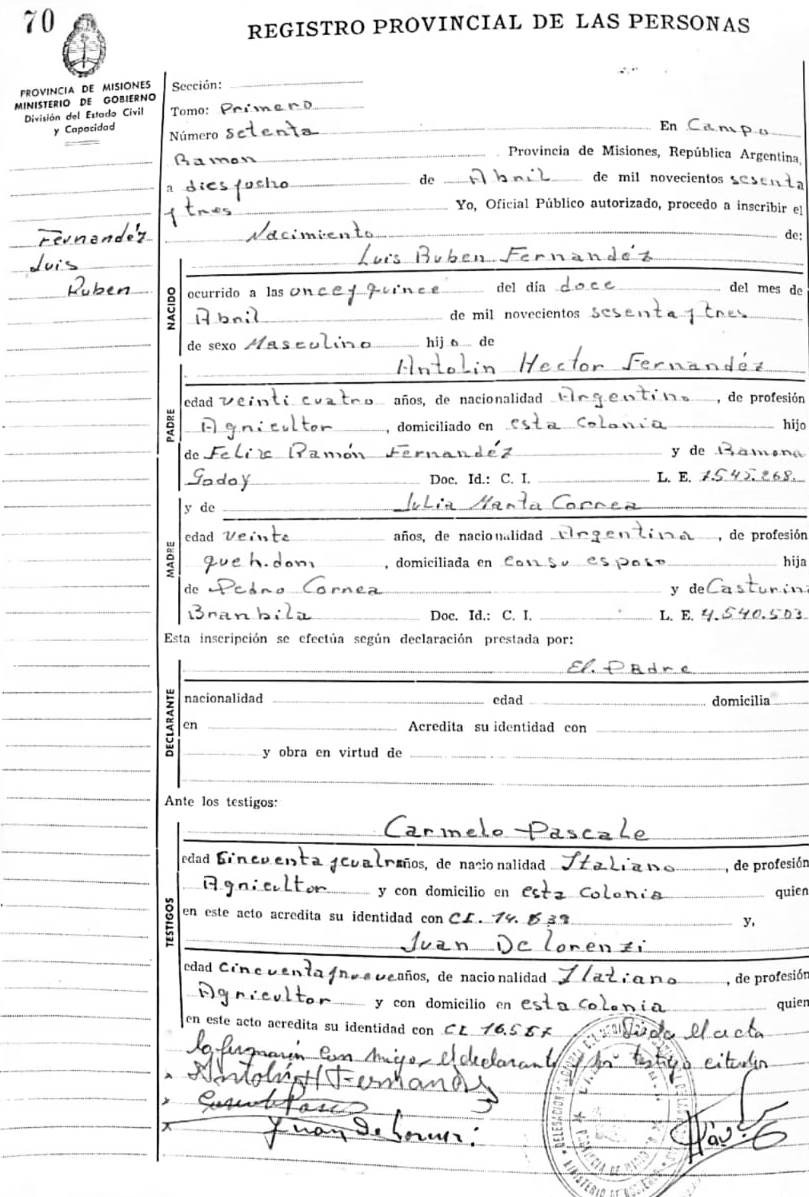 70
REGISTRO PROVINCIAL DE LAS PERSONAS
PROVINCIA DE MISIONES
MINISTERIO DE GOBIERNO
División del Estado Civil
y Capacidad
Sección:
Tomo: Primero
Número Setenta En Campo
Ramon Provincia de Misiones, República Argentina,
a dies yocho de Abril de mil novecientos sesenta
y tres Yo, Oficial Público autorizado, procedo a inscribir el
Nacimiento de:
Fernandéz
Luis
Ruben
Luis Ruben Fernandéz
NACIDO
ocurrido a las once y quince del día doce del mes de
Abril de mil novecientos sesenta y tres
de sexo Masculino hijo de
Antolin Hector Fernandéz
PADRE
edad veinti cuatro años, de nacionalidad Argentino, de profesión
Agricultor, domiciliado en esta Colonia hijo
de Felix Ramón Fernandéz y de Ramona
Godoy Doc. Id.: C. I. L. E. 7.545.268.
y de Julia Marta Correa
MADRE
edad Veinte años, de nacionalidad Argentina, de profesión
que h. dom, domiciliada en con su esposo hija
de Pedro Correa y de Casturina
Branbila Doc. Id.: C. I. L. E. 4.540.503
Esta inscripción se efectúa según declaración prestada por:
El. Padre
DECLARANTE
nacionalidad edad domicilia
en Acredita su identidad con
y obra en virtud de
Ante los testigos:
Carmelo Pascale
TESTIGOS
edad Cincuenta y cuatro años, de nacionalidad Italiano, de profesión
Agricultor y con domicilio en esta Colonia quien
en este acto acredita su identidad con CI. 14. y,
Juan De lorenzi
edad Cincuenta y nueve años, de nacionalidad Italiano, de profesión
Agricultor y con domicilio en esta Colonia quien
en este acto acredita su identidad con CI 16.557 Leida el acta
la firmarón con migo, el declarante y los testigo citados
Antolin H Fernandez
Juan De Lorenzi